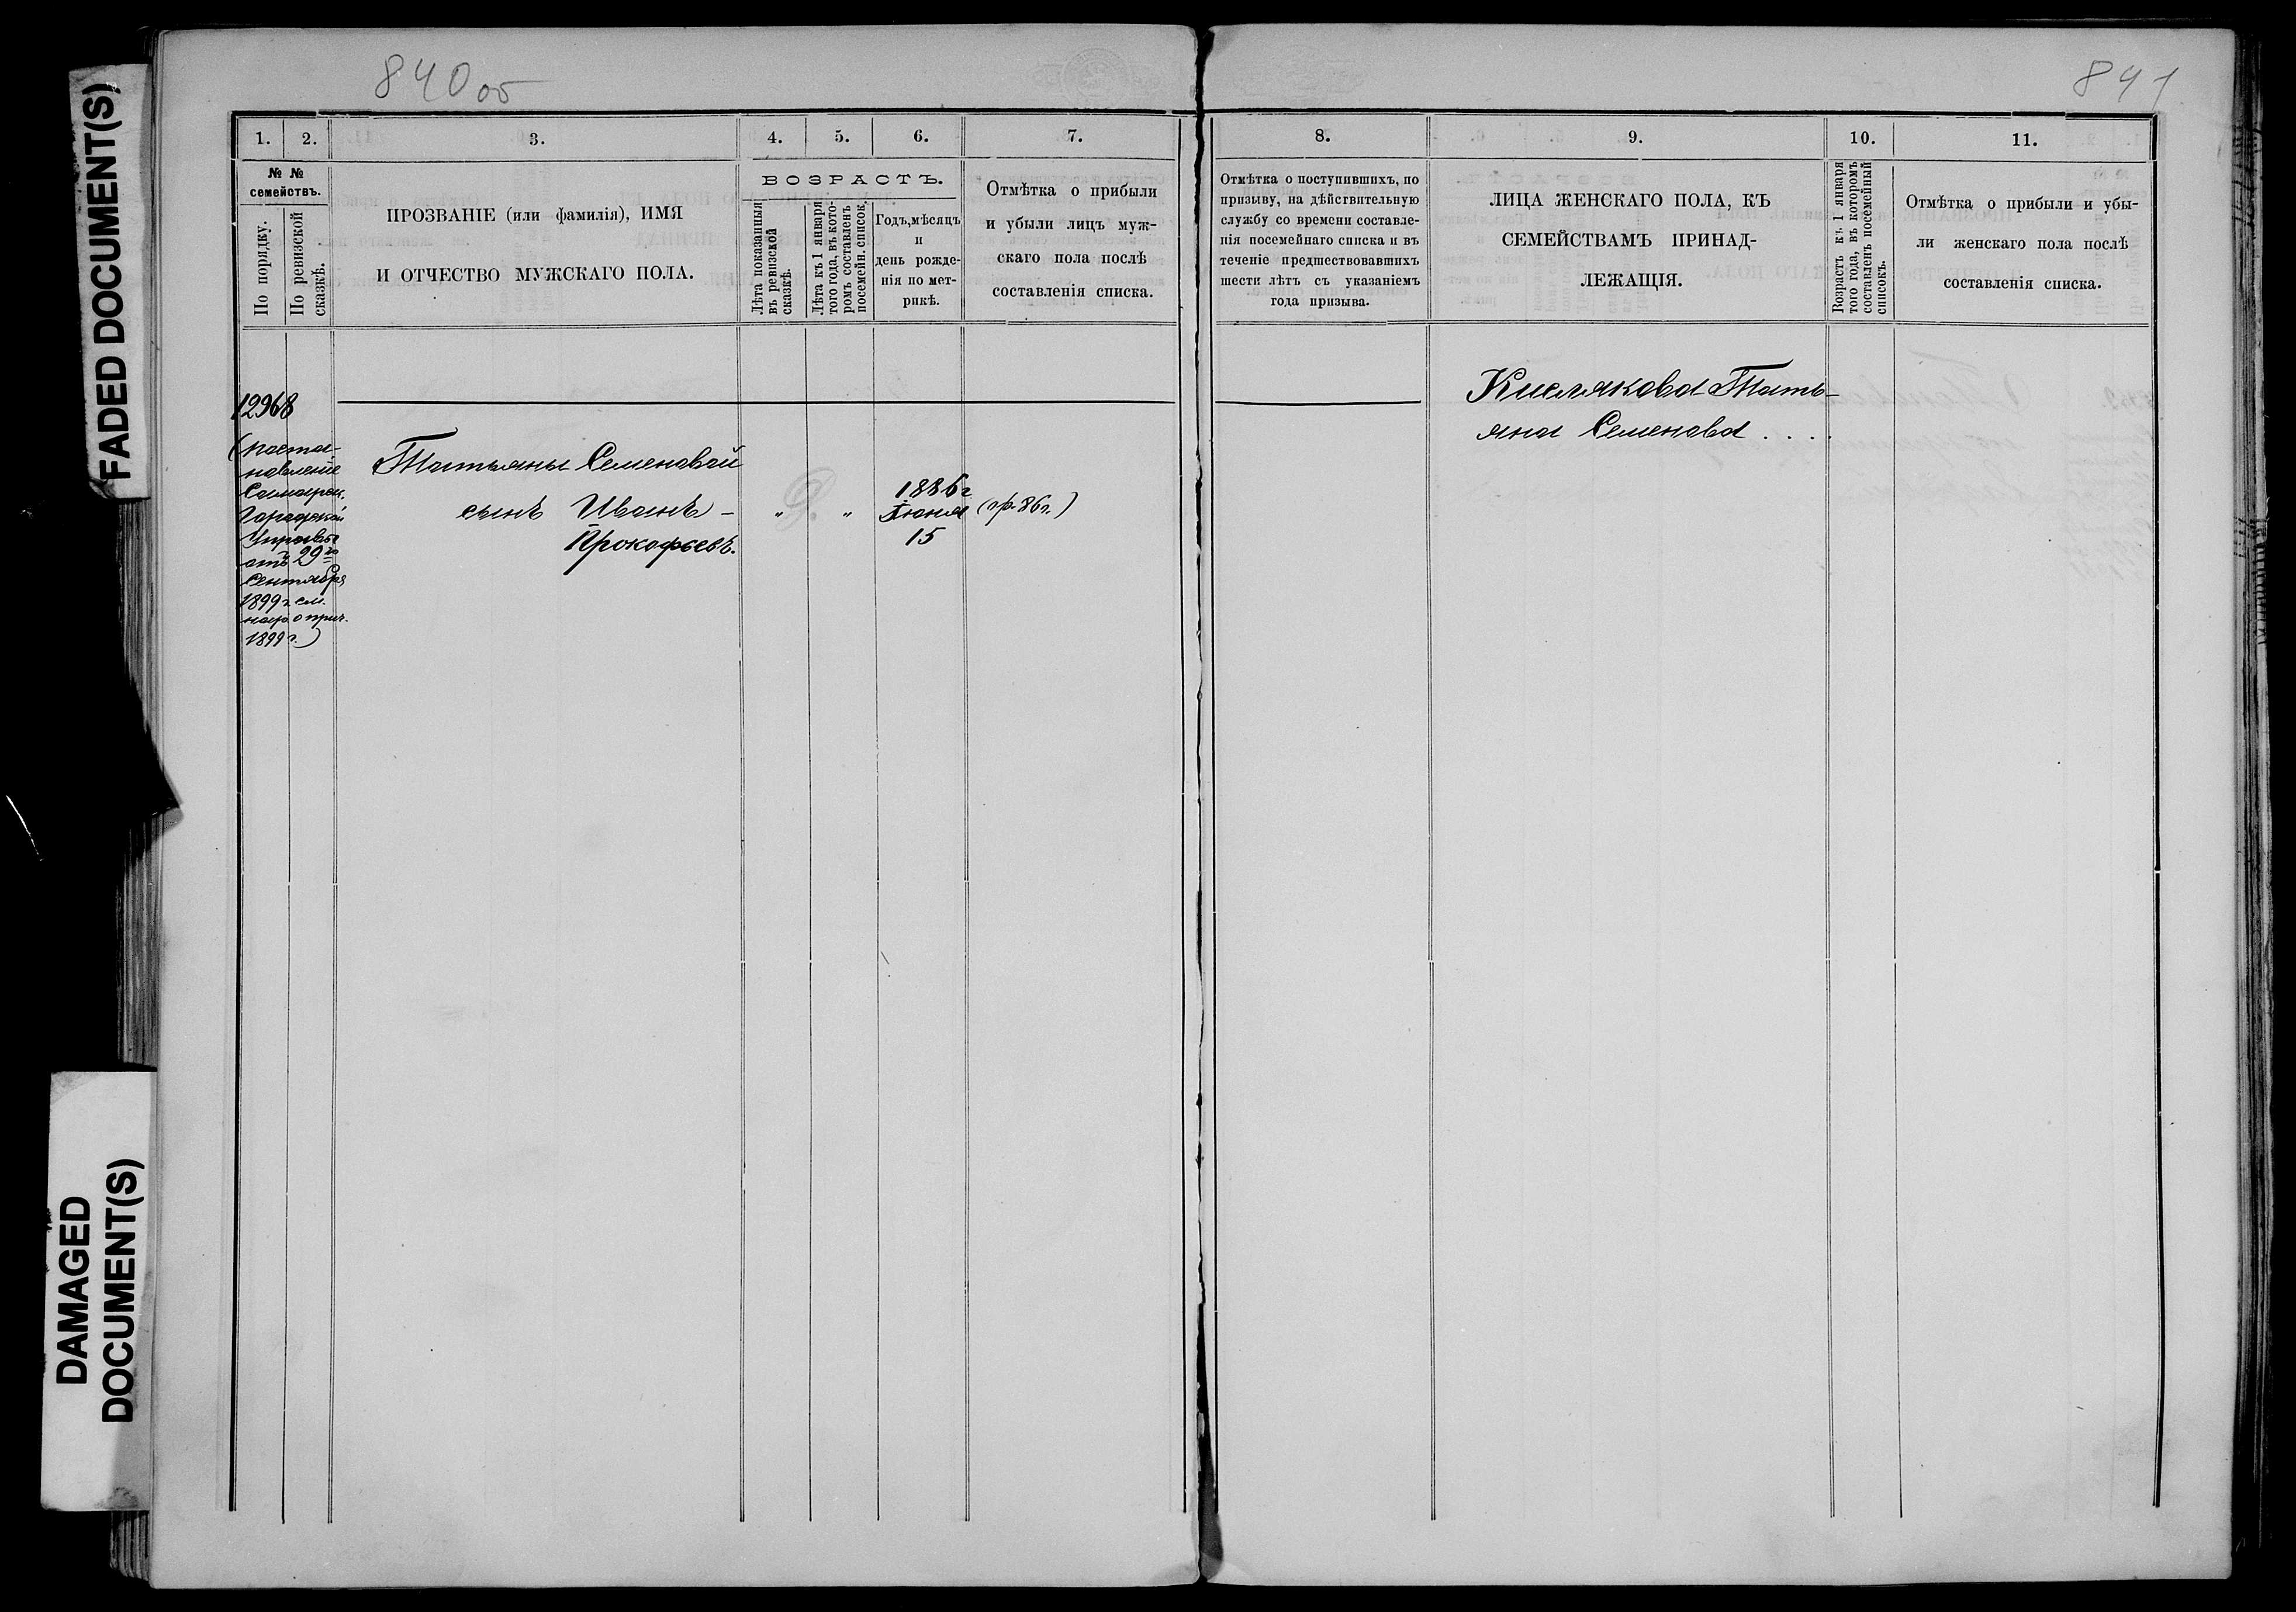 FADED DOCUMENT(S)
DAMAGED
DOCUMENT(S)
840 об
841
1.
2.
3.
4.
5.
6.
7.
№ №
семействъ.
По порядку.
По ревизской
сказкѣ.
ПРОЗВАНІЕ (или фамилія), ИМЯ
И ОТЧЕСТВО МУЖСКАГО ПОЛА.
ВОЗРАСТЪ.
Лѣта показанныя
въ ревизской
сказкѣ.
Лѣта къ 1 января
того года, въ кото-
ромъ составленъ
посемейн. список.
Годъ, мѣсяцъ
и
день рожде-
нія по мет-
рикѣ.
Отмѣтка о прибыли
и убыли лицъ муж-
скаго пола послѣ
составленія списка.
12968
(поста-
новленіе
Самарск.
Городской
Управы
отъ 29го
Сентября
1899 г. см.
о прич.
1899 г.)
Татьяны Семеновой
сынъ Иванъ –
Прокофьевъ.
„ „
1886 г
Іюня (пр. 86 г.)
15
8.
9.
10.
11.
Отмѣтка о поступившихъ, по
призыву, на дѣйствительную
службу со времени составле-
нія посемейнаго списка и въ
теченіе предшествовавшихъ
шести лѣтъ съ указаніемъ
года призыва.
ЛИЦА ЖЕНСКАГО ПОЛА, КЪ
СЕМЕЙСТВАМЪ ПРИНАД-
ЛЕЖАЩІЯ.
Возрастъ къ 1 января
того года, въ которомъ
составленъ посемейный
списокъ.
Отмѣтка о прибыли и убы-
ли женскаго пола послѣ
составленія списка.
Кислякова Тать-
яна Семенова . . . .